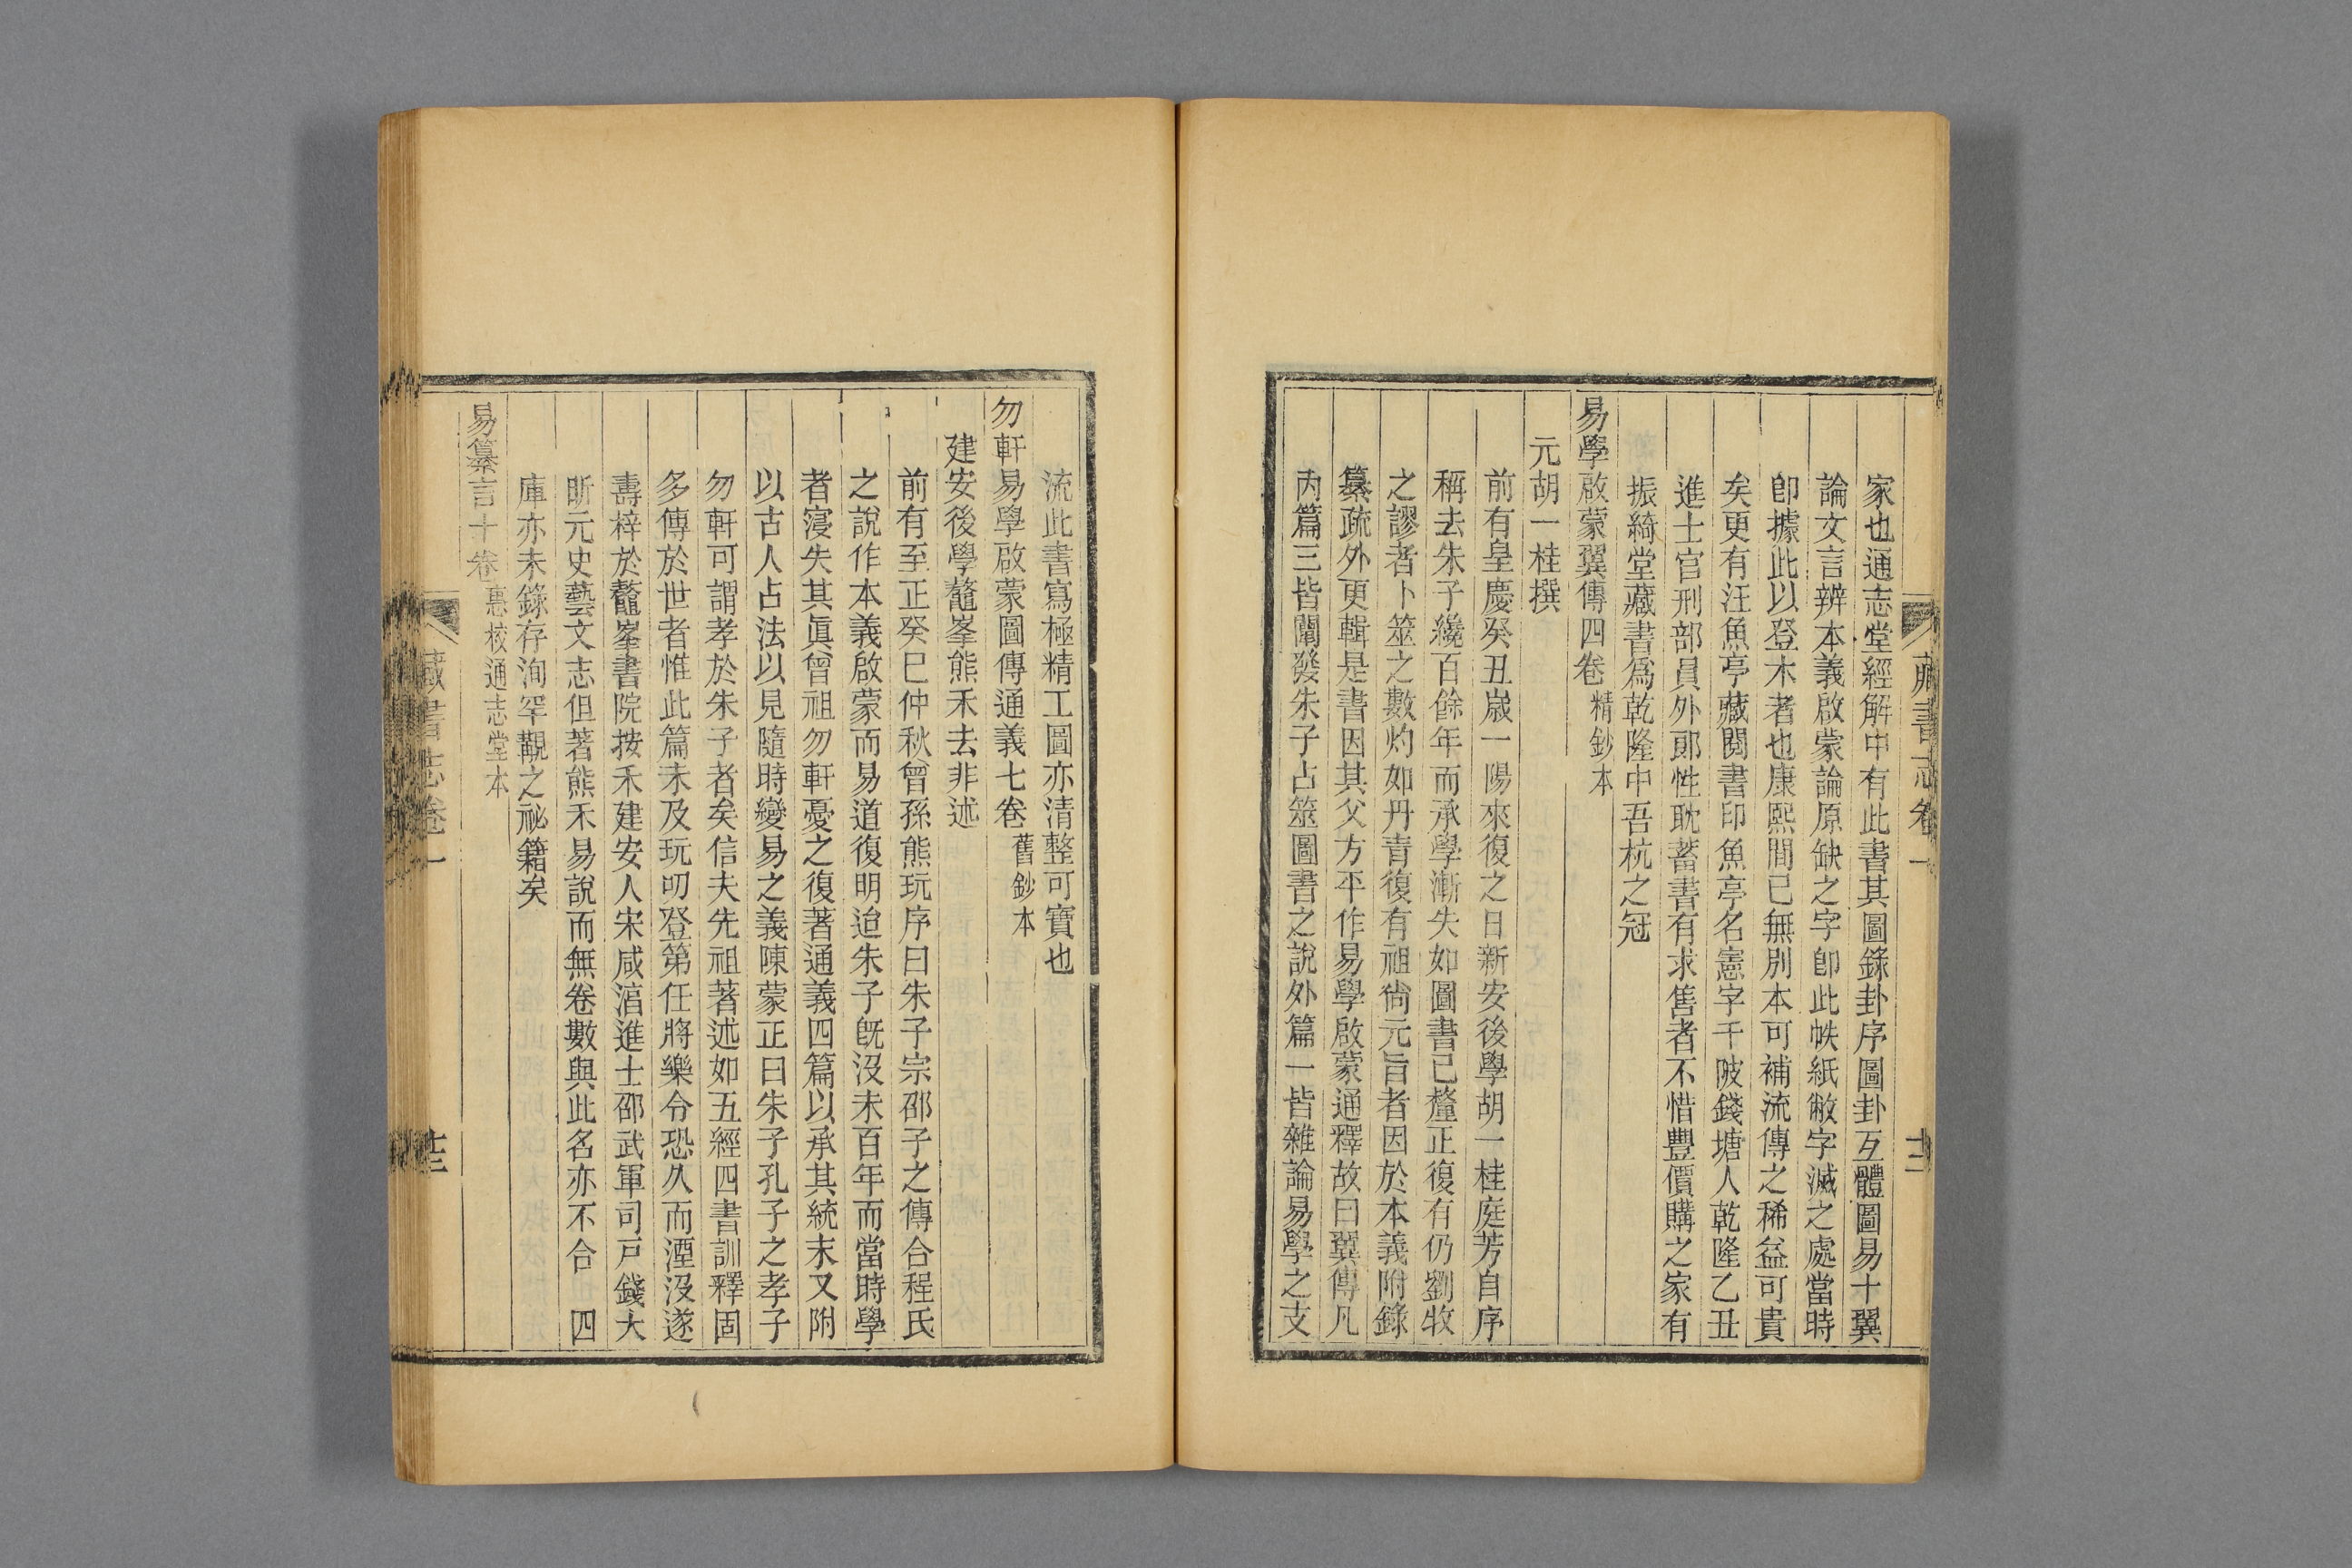 藏書志卷一
十二
家也通志堂經解中有此書其圖錄卦序圖卦互體圖易十翼
論文言辨本義啟蒙論原缺之字卽此帙紙敝字滅之處當時
卽據此以登木者也康熙間已無別本可補流傳之稀益可貴
矣更有汪魚亭藏閱書印魚亭名憲字千陂錢塘人乾隆乙丑
進士官刑部員外郞性耽蓄書有求售者不惜豐價購之家有
振綺堂藏書爲乾隆中吾杭之冠
易學啟蒙翼傳四卷 精鈔本
元胡一桂撰
前有皇慶癸丑歲一陽來復之日新安後學胡一桂庭芳自序
稱去朱子纔百餘年而承學漸失如圖書已釐正復有仍劉牧
之謬者卜筮之數灼如丹青復有祖尙元旨者因於本義附錄
纂疏外更輯是書因其父方平作易學啟蒙通釋故曰翼傳凡
內篇三皆闡發朱子占筮圖書之說外篇一皆雜論易學之支
流此書寫極精工圖亦清整可寶也
勿軒易學啟蒙圖傳通義七卷 舊鈔本
建安後學鼇峯熊禾去非述
前有至正癸巳仲秋曾孫熊玩序曰朱子宗邵子之傳合程氏
之說作本義啟蒙而易道復明迨朱子旣沒未百年而當時學
者寖失其眞曾祖勿軒憂之復著通義四篇以承其統末又附
以古人占法以見隨時變易之義陳蒙正曰朱子孔子之孝子
勿軒可謂孝於朱子者矣信夫先祖著述如五經四書訓釋固
多傳於世者惟此篇未及玩叨登第任將樂令恐久而湮沒遂
壽梓於鼇峯書院按禾建安人宋咸淳進士邵武軍司戶錢大
昕元史藝文志但著熊禾易說而無卷數與此名亦不合 四
庫亦未錄存洵罕覯之祕籍矣
易纂言十卷 惠校通志堂本
藏書志卷一
十三